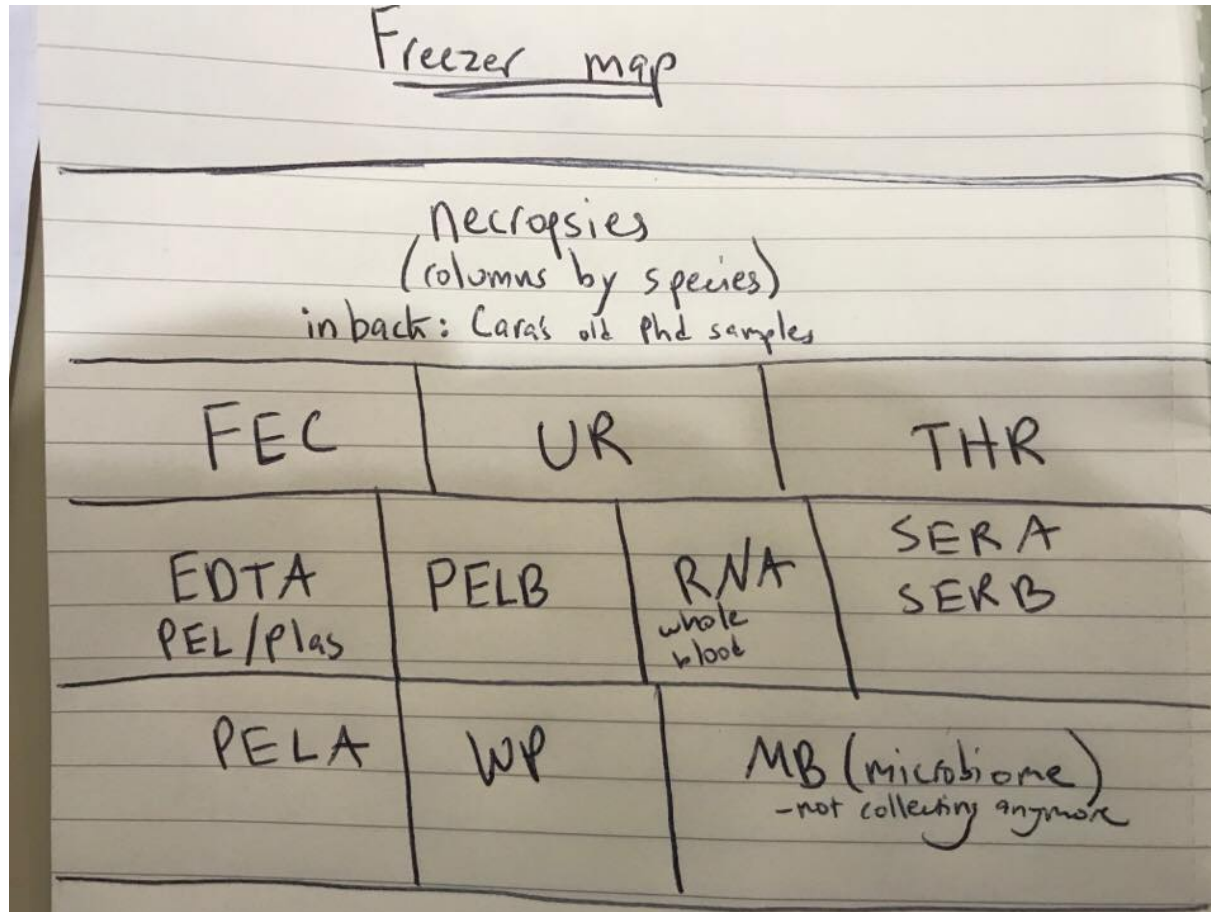 Freezer map
necropsies
(columns by species)
in back: Cara's old Phd samples
FEC UR THR
EDTA PELB RNA SERA
PEL/plas whole SERB
blood
PELA WP MB (microbiome)
-not collecting anymore